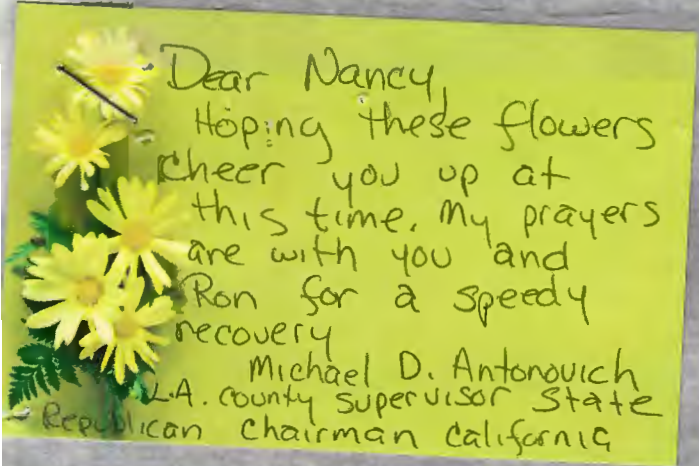 Dear Nancy,
Hoping these flowers
cheer you up at
this time. My prayers
are with you and
Ron for a speedy
recovery
Michael D. Antonovich
L.A. county supervisor State
Republican Chairman California